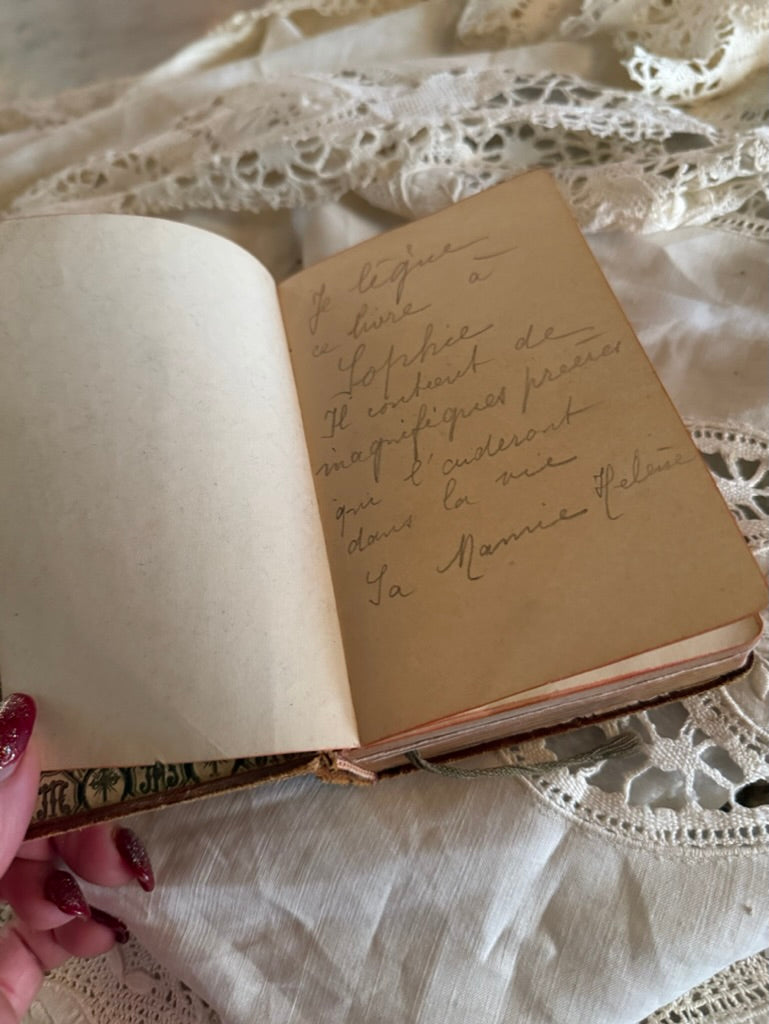 Je lègue
ce livre à
Sophie
Il contient de
magnifiques prières
qui l'aideront
dans la vie
Sa Mamie Helène